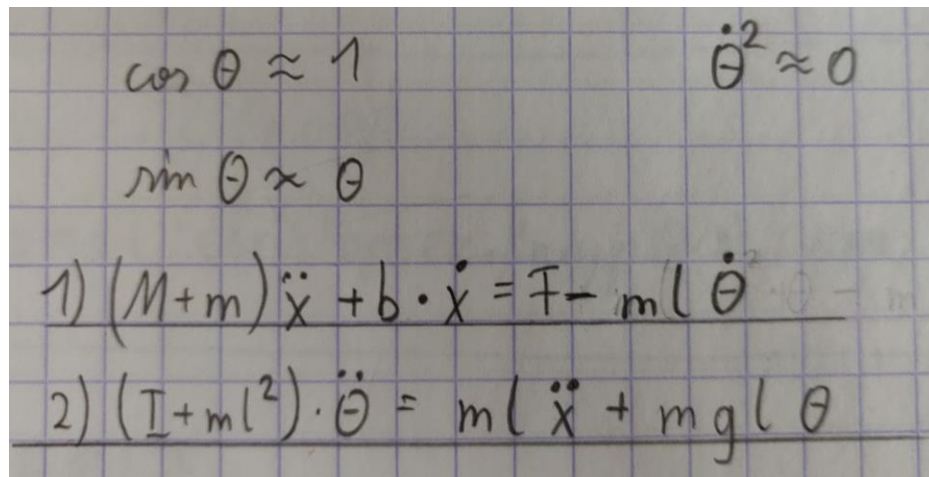 cos θ ≈ 1 θ̇² ≈ 0
sin θ ≈ θ
1) (M+m) ẍ + b · ẋ = F - m l θ̇
2) (I + m l²) · θ̈ = m l ẍ + m g l θ